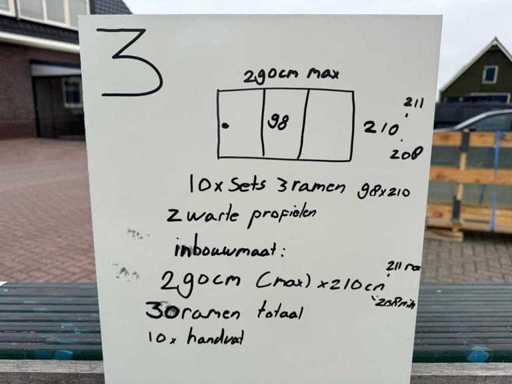 3
290cm max
98
211
210
208
10x sets 3 ramen 98x210
zwarte profielen
inbouwmaat:
211 max
290cm (max) x 210cm
208 min
30 ramen totaal
10x handvat